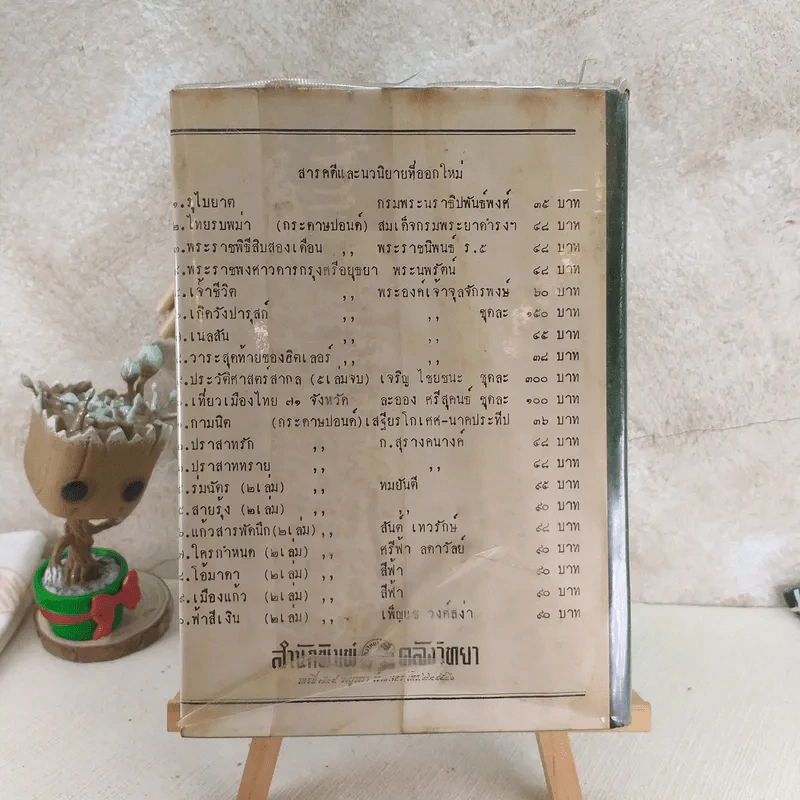 สารคดีและนวนิยายที่ออกใหม่
๑.รุไบยาต กรมพระนราธิปพันธ์พงศ์ ๓๕ บาท
๒.ไทยรบพม่า (กระดาษปอนด์) สมเด็จกรมพระยาดำรงฯ ๔๘ บาท
๓.พระราชพิธีสิบสองเดือน ,, พระราชนิพนธ์ ร.๕ ๔๘ บาท
๔.พระราชพงศาวดารกรุงศรีอยุธยา พระนพรัตน์ ๔๘ บาท
๕.เจ้าชีวิต ,, พระองค์เจ้าจุลจักรพงษ์ ๖๐ บาท
๖.เกิดวังปารุสก์ ,, ,, ชุดละ ๑๕๐ บาท
๗.เนลสัน ,, ,, ๔๕ บาท
๘.วาระสุดท้ายของฮิตเลอร์ ,, ,, ๓๘ บาท
๙.ประวัติศาสตร์สากล (๕เล่มจบ) เจริญ ไชยชนะ ชุดละ ๓๐๐ บาท
๐.เที่ยวเมืองไทย ๗๑ จังหวัด ละออง ศรีสุคนธ์ ชุดละ ๑๐๐ บาท
.กามนิต (กระดาษปอนด์) เสฐียรโกเศศ-นาคประทีป ๓๖ บาท
.ปราสาทรัก ,, ก.สุรางคนางค์ ๔๘ บาท
.ปราสาททราย ,, ,, ๔๘ บาท
.ร่มฉัตร (๒เล่ม) ,, ทมยันตี ๙๕ บาท
.สายรุ้ง (๒เล่ม) ,, ,, ๙๐ บาท
.แก้วสารพัดนึก(๒เล่ม) ,, สันต์ เทวรักษ์ ๙๘ บาท
๗.ใครกำหนด (๒เล่ม) ,, ศรีฟ้า ลดาวัลย์ ๙๐ บาท
๘.โอ้มาดา (๒เล่ม) ,, สีฟ้า ๙๐ บาท
๙.เมืองแก้ว (๒เล่ม) ,, สีฟ้า ๙๐ บาท
๐.ฟ้าสีเงิน (๒เล่ม) ,, วงศ์สง่า ๙๐ บาท
สำนักพิมพ์ คลังวิทยา